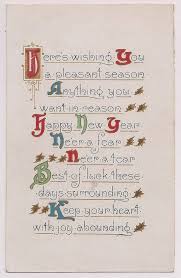 Here's wishing You
a pleasant season
Anything you
want in reason
Happy New Year
Neer a fear
Neer a fear
Best of luck these
days surrounding
Keep your heart
with joy abounding